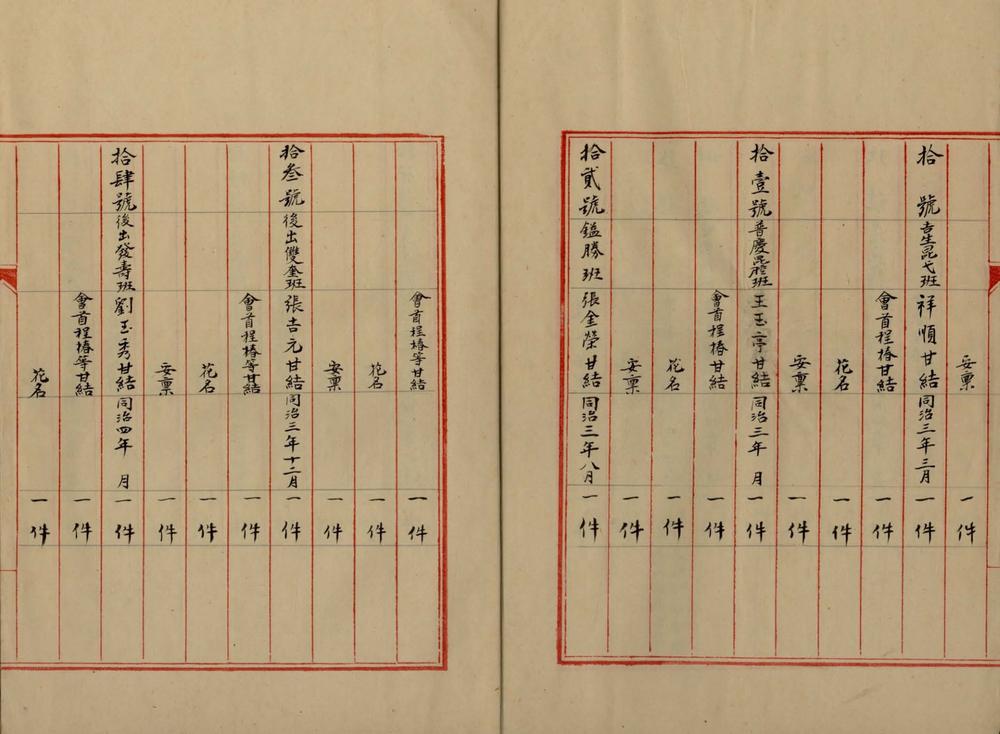 安稟 一件
拾號 吉生昆弋班 祥順甘結 同治三年三月 一件
會首程椿甘結 一件
花名 一件
安稟 一件
拾壹號 普慶崑腔班 王玉亭甘結 同治三年 月 一件
會首程椿甘結 一件
花名 一件
安稟 一件
拾貳號 鎰勝班 張金榮甘結 同治三年八月 一件
會首程椿等甘結 一件
花名 一件
安稟 一件
拾叁號 後出雙奎班 張吉元甘結 同治三年十二月 一件
會首程椿等甘結 一件
花名 一件
安稟 一件
拾肆號 後出發壽班 劉玉秀甘結 同治四年 月 一件
會首程椿等甘結 一件
花名 一件